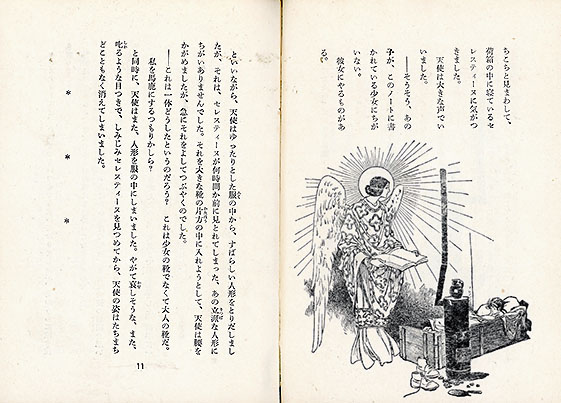 ちこらと見まわして、
荷箱の中に寝ているセ
レスティーヌに気がつ
きました。
天使は大きな声でい
いました。
――そうそう、あの
子が、このノートに書
かれている少女にちが
いない。
彼女にやるものがあ
る。
といいながら、天使はゆったりとした服の中から、すばらしい人形をとりだしまし
たが、それは、セレスティーヌが何時間か前に見とれてしまった、あの立派な人形に
ちがいありませんでした。それを大きな靴の片方の中に入れようとして、天使は腰を
かがめましたが、急にそれをよしてつぶやくのでした。
――これは一体どうしたというのだろう？　これは少女の靴でなくて大人の靴だ。
私を馬鹿にするつもりかしら？
と同時に、天使はまた、人形を服の中にしまいました。やがて哀しそうな、また、
叱るような目つきで、しみじみセレスティーヌを見つめてから、天使の姿はたちまち
どこともなく消えてしまいました。
＊　＊　＊
11